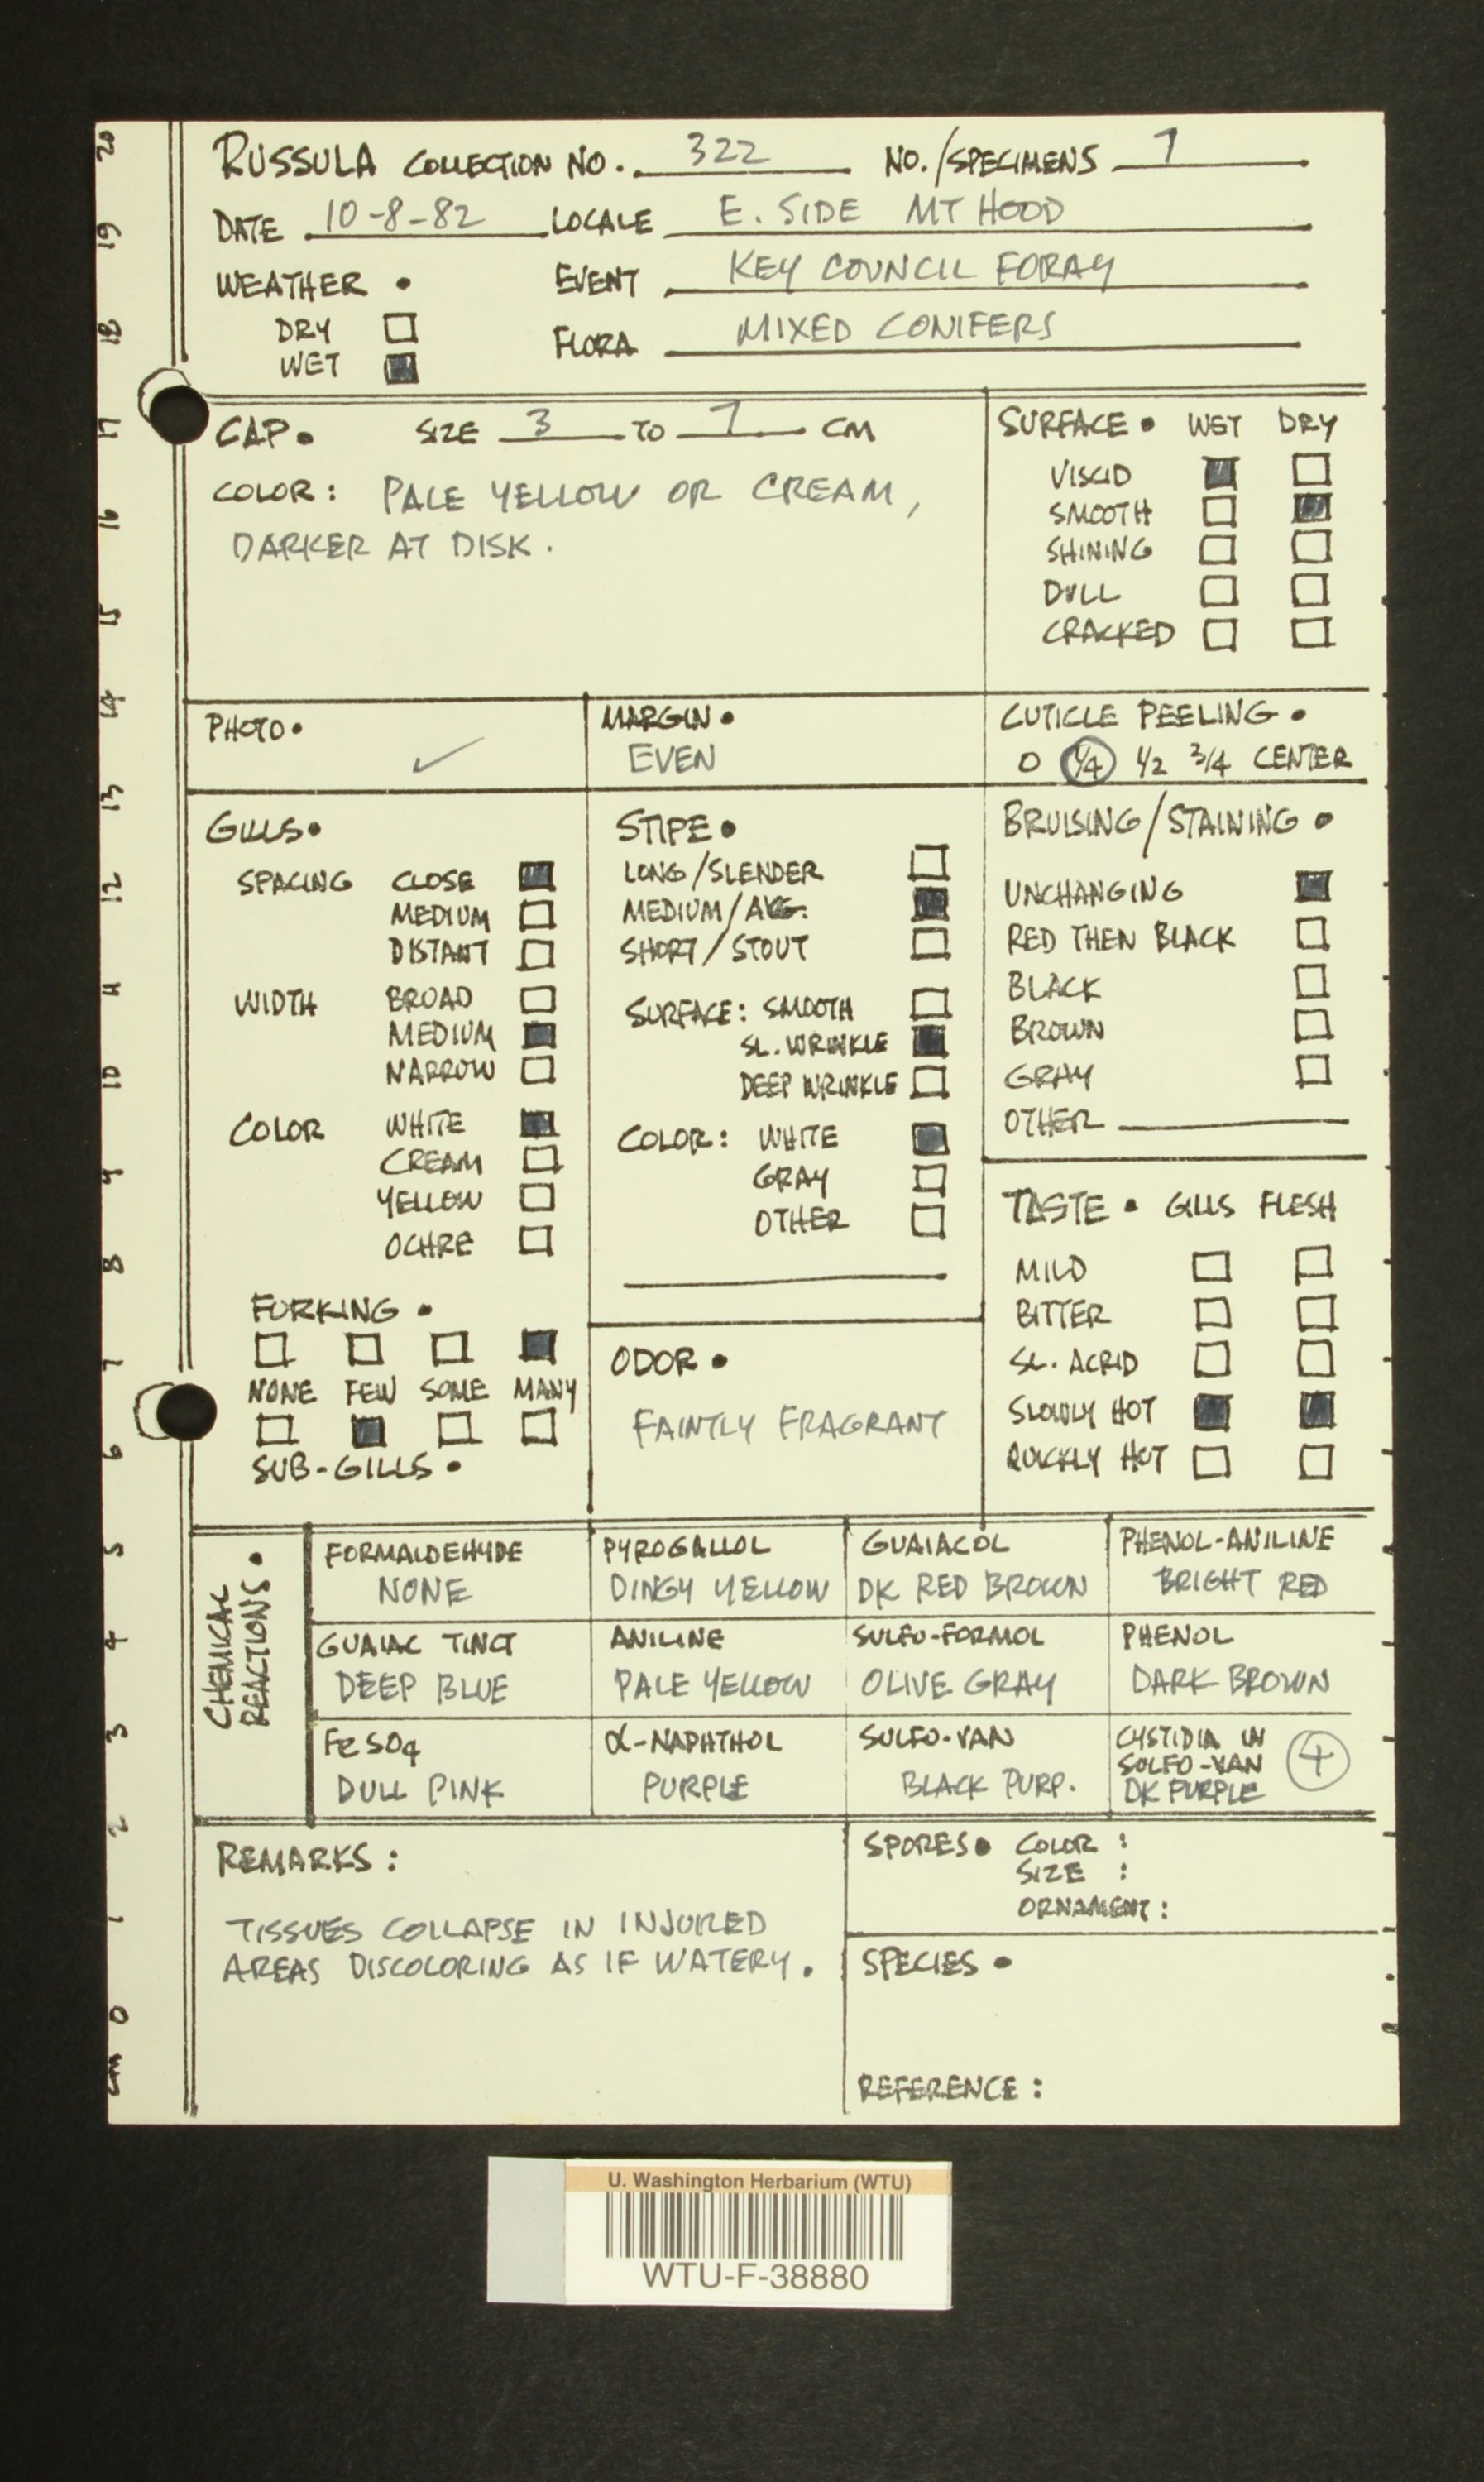 RUSSULA COLLECTION NO. 322 NO./SPECIMENS 7
DATE 10-8-82 LOCALE E. SIDE MT HOOD
WEATHER • EVENT KEY COUNCIL FORAY
DRY
WET
FLORA MIXED CONIFERS
CAP • SIZE 3 TO 7 CM
COLOR: PALE YELLOW OR CREAM,
DARKER AT DISK.
SURFACE • WET DRY
VISCID
SMOOTH
SHINING
DULL
CRACKED
PHOTO • ✓
MARGIN •
EVEN
CUTICLE PEELING •
0 1/4 1/2 3/4 CENTER
GILLS •
SPACING CLOSE
MEDIUM
DISTANT
WIDTH BROAD
MEDIUM
NARROW
COLOR WHITE
CREAM
YELLOW
OCHRE
FORKING •
NONE FEW SOME MANY
SUB-GILLS •
STIPE •
LONG/SLENDER
MEDIUM/AVG.
SHORT/STOUT
SURFACE: SMOOTH
SL. WRINKLE
DEEP WRINKLE
COLOR: WHITE
GRAY
OTHER
ODOR •
FAINTLY FRAGRANT
BRUISING/STAINING •
UNCHANGING
RED THEN BLACK
BLACK
BROWN
GRAY
OTHER
TASTE • GILLS FLESH
MILD
BITTER
SL. ACRID
SLOWLY HOT
QUICKLY HOT
CHEMICAL
REACTIONS •
FORMALDEHYDE
NONE
PYROGALLOL
DINGY YELLOW
GUAIACOL
DK RED BROWN
PHENOL-ANILINE
BRIGHT RED
GUAIAC TINCT
DEEP BLUE
ANILINE
PALE YELLOW
SULFO-FORMOL
OLIVE GRAY
PHENOL
DARK BROWN
FeSO4
DULL PINK
α-NAPHTHOL
PURPLE
SULFO-VAN
BLACK PURP.
CYSTIDIA IN
SULFO-VAN +
DK PURPLE
REMARKS:
TISSUES COLLAPSE IN INJURED
AREAS DISCOLORING AS IF WATERY.
SPORES • COLOR:
SIZE:
ORNAMENT:
SPECIES •
REFERENCE:
20
19
18
17
16
15
14
13
12
11
10
9
8
7
6
5
4
3
2
1
0
CM
U. Washington Herbarium (WTU)
WTU-F-38880